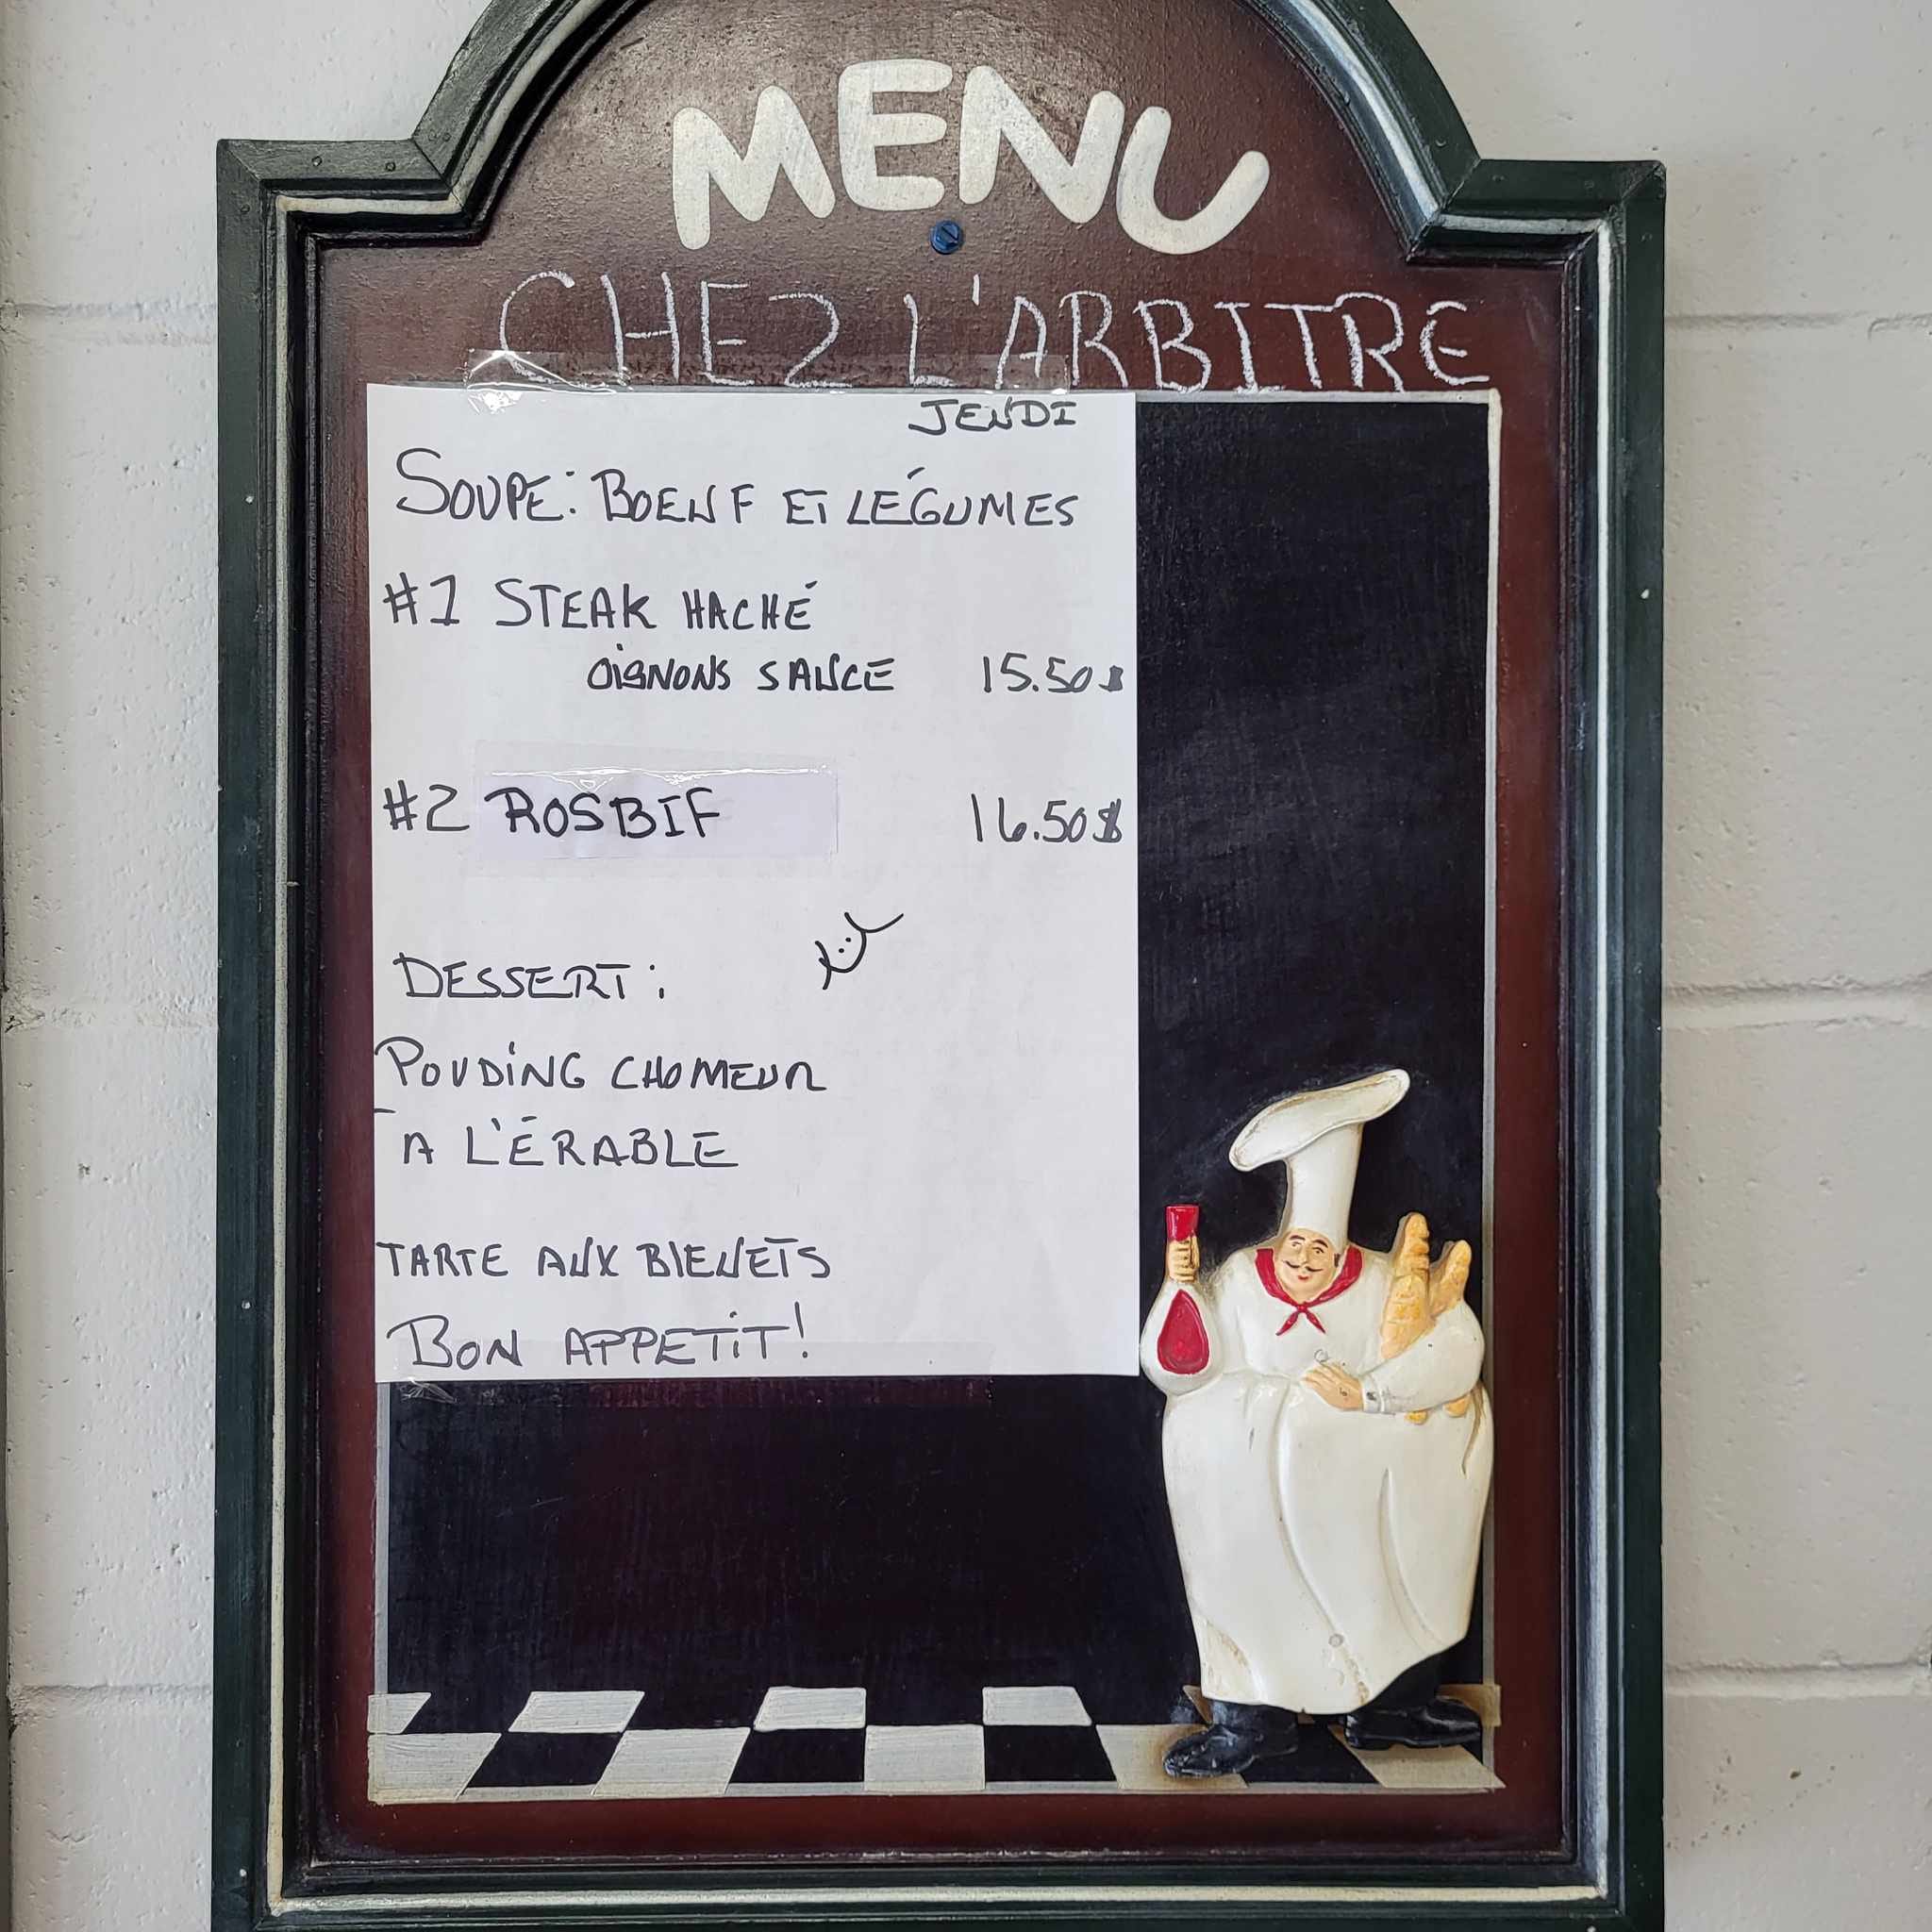 MENU
CHEZ L'ARBITRE
JEUDI
SOUPE: BOEUF ET LÉGUMES
#1 STEAK HACHÉ
OIGNONS SAUCE 15.50$
#2 ROSBIF 16.50$
DESSERT:
POUDING CHOMEUR
À L'ÉRABLE
TARTE AUX BLEUETS
BON APPETIT!